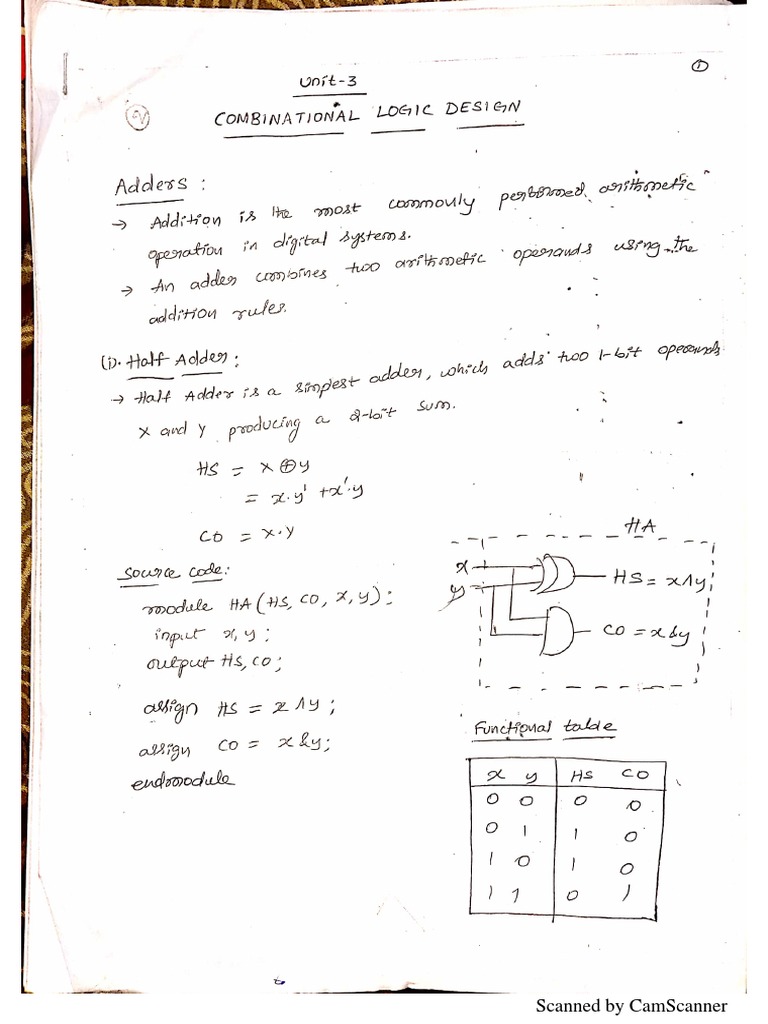 ①
Unit-3
COMBINATIONAL LOGIC DESIGN
Adders :
→ Addition is the most commonly performed arithmetic
operation in digital systems.
→ An adder combines two arithmetic operands using the
addition rules.
(i). Half Adder :
→ Half Adder is a simplest adder, which adds two 1-bit operands
X and Y producing a 2-bit sum.
HS = X⊕Y
= x·y' + x'·y
CO = X·Y
Source code:
module HA (HS, CO, X, Y) ;
input x, y ;
output HS, CO ;
assign HS = x ^ y ;
assign CO = x & y ;
endmodule
HA
x
y
HS = x^y
CO = x&y
Functional table
x y HS CO
0 0 0 0
0 1 1 0
1 0 1 0
1 1 0 1
Scanned by CamScanner